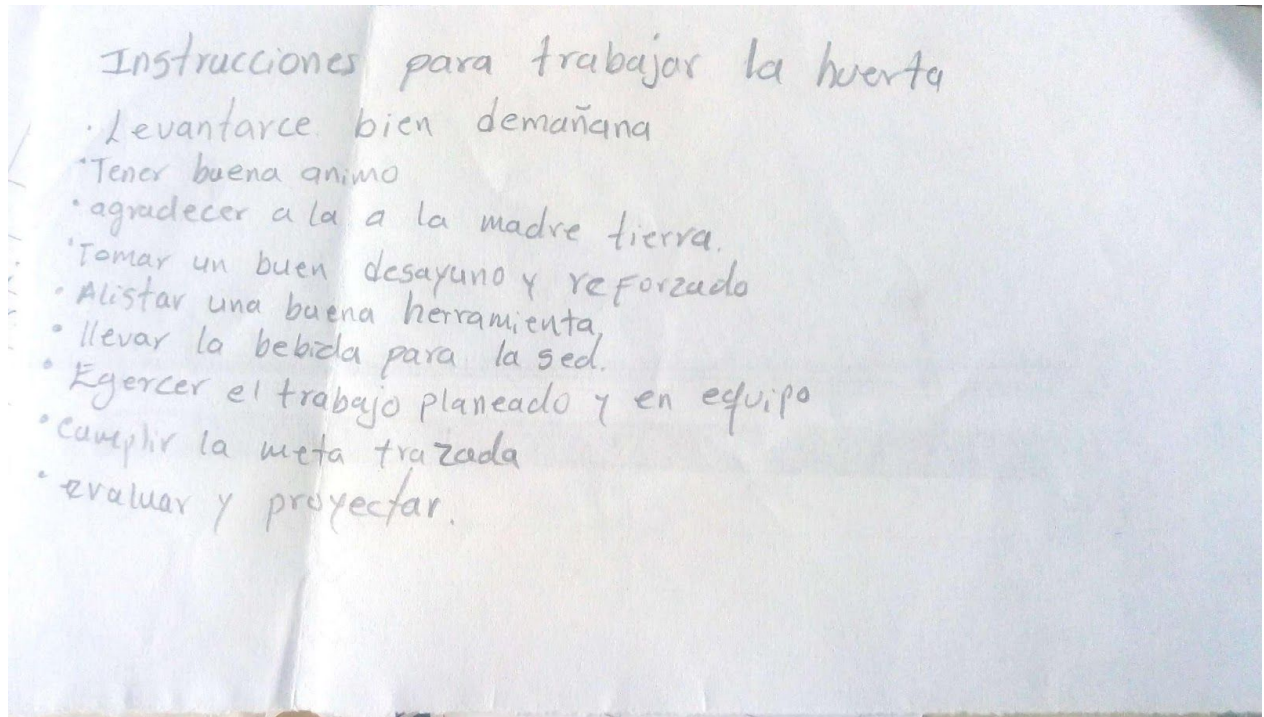 Instrucciones para trabajar la huerta
· Levantarce bien demañana
· Tener buena animo
· agradecer a la a la madre tierra.
· Tomar un buen desayuno y reforzado
· Alistar una buena herramienta,
· llevar la bebida para la sed.
· Egercer el trabajo planeado y en equipo
· cumplir la meta trazada
· evaluar y proyectar.